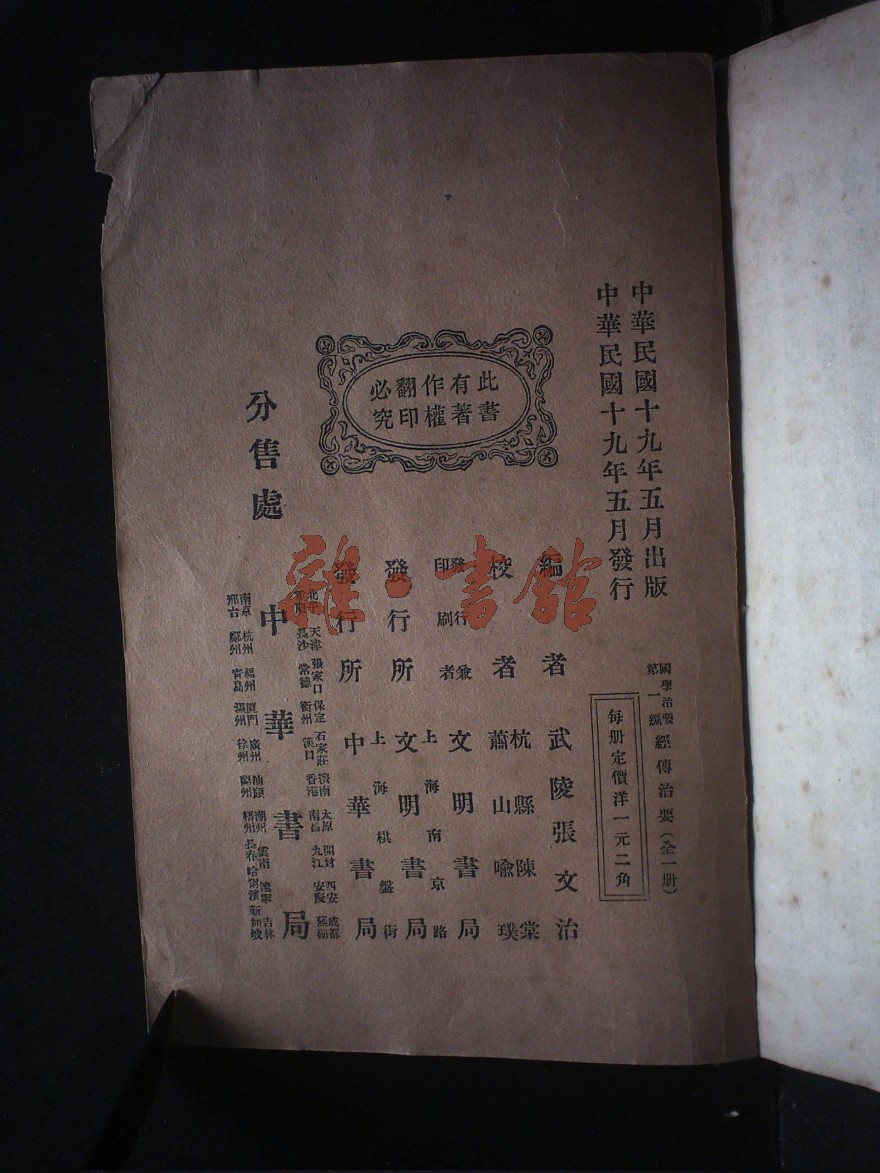 中華民國十九年五月出版
中華民國十九年五月發行
國學治要第一編
經傳治要(全一册)
每册定價洋一元二角
此書有著作權翻印必究
編者 武陵張文治
校者 杭縣陳棠
蕭山喩璞
發行兼印刷者 文明書局
上海南京路
發行所 文明書局
上海棋盤街
發行所 中華書局
分售處 中華書局
天津 張家口 保定 石家莊 濟南 太原 開封 西安 成都
長沙 常德 衡州 漢口 香港 南昌 九江 安慶 蕪湖
南京 杭州 福州 廈門 廣州 汕頭 潮州 雲南 遼寧 吉林
邢台 鄭州 青島 溫州 徐州 蘭州 梧州 長春 哈爾濱 新加坡
雜·書館